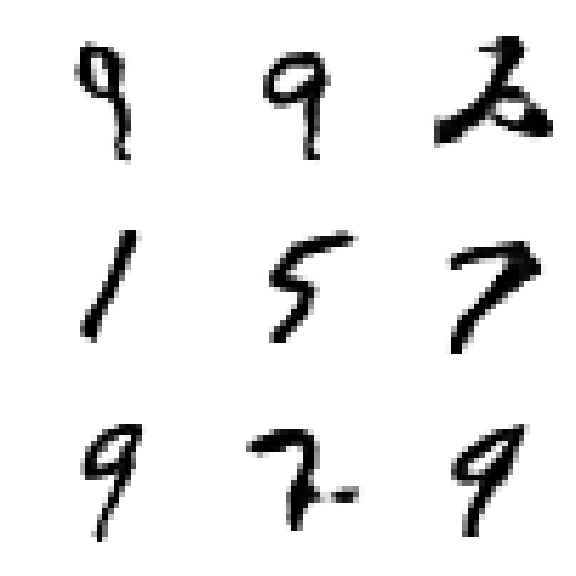 9 9 2
1 5 7
9 7 9